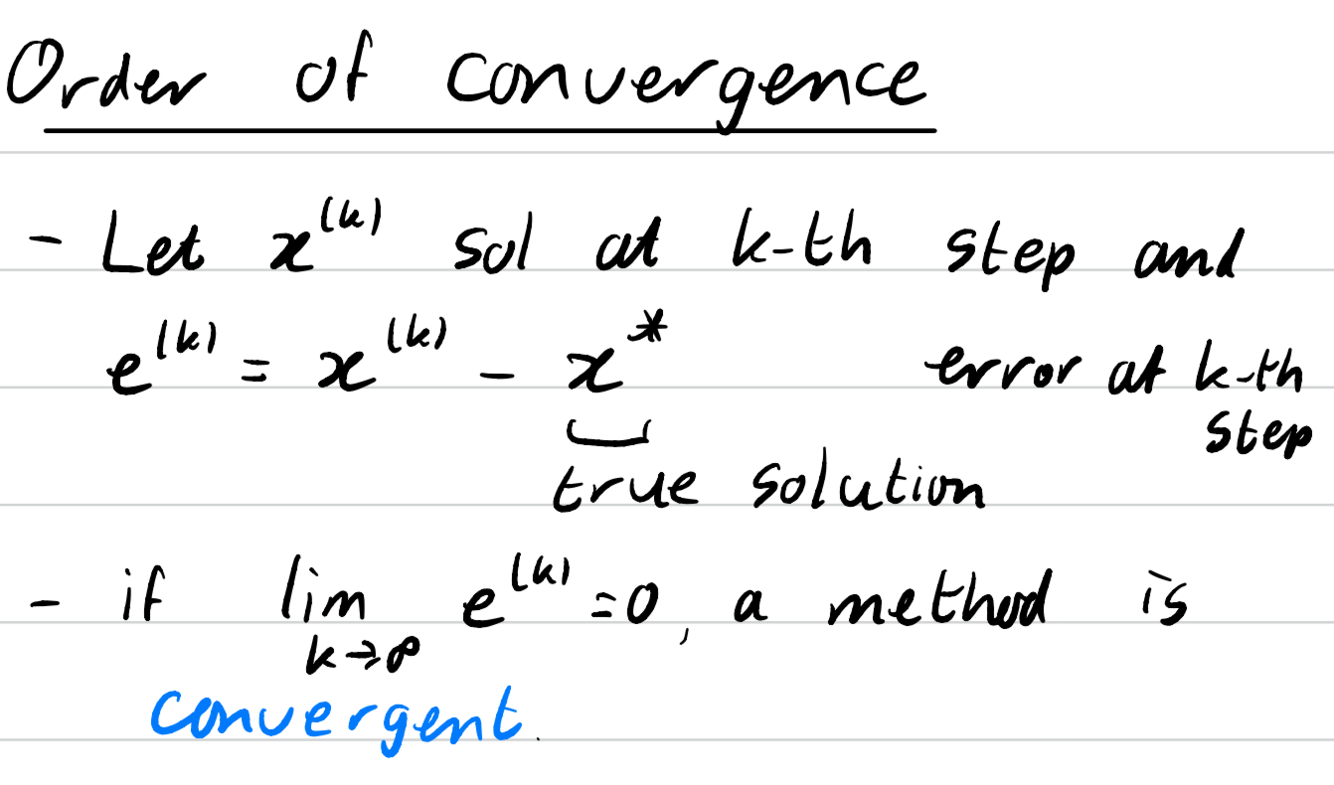 Order of convergence
- Let x^(k) sol at k-th step and
e^(k) = x^(k) - x^* error at k-th
step
true solution
- if lim e^(k) = 0, a method is
k→∞
convergent.